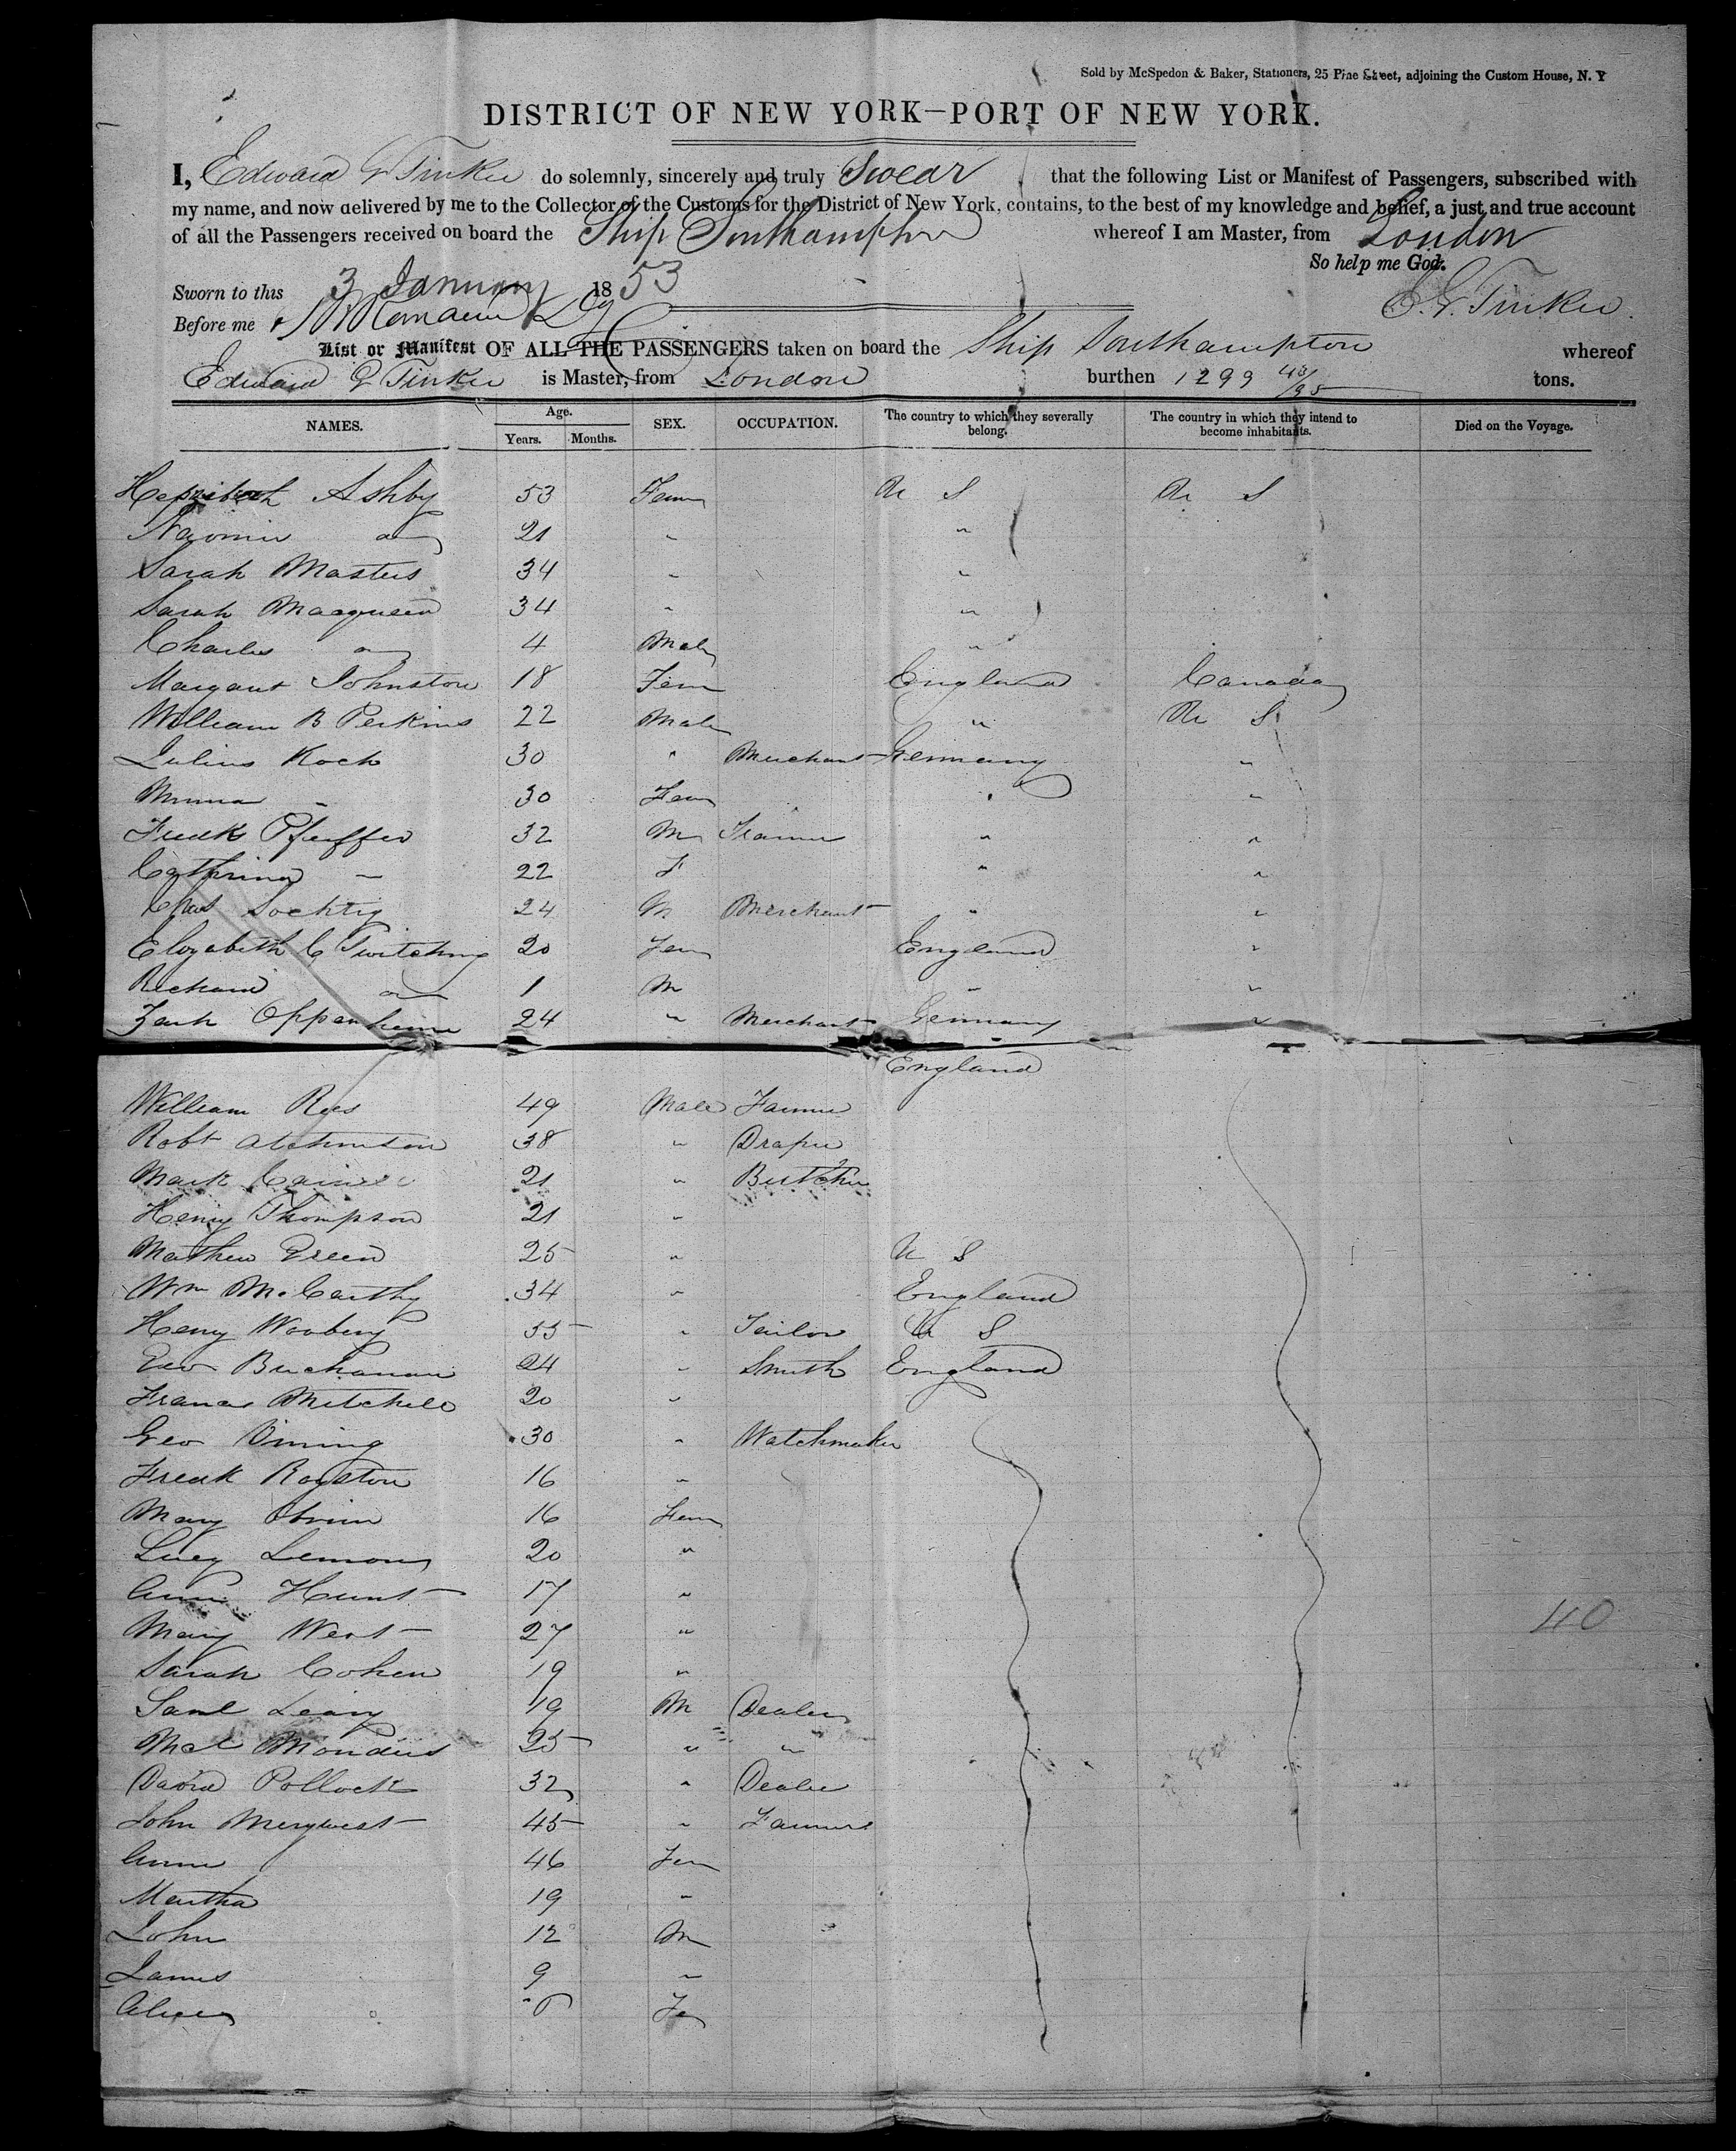 Sold by McSpedon & Baker, Stationers, 25 Pine Street, adjoining the Custom House, N. Y
DISTRICT OF NEW YORK—PORT OF NEW YORK.
I, Edward G Tinker do solemnly, sincerely and truly Swear that the following List or Manifest of Passengers, subscribed with
my name, and now delivered by me to the Collector of the Customs for the District of New York, contains, to the best of my knowledge and belief, a just and true account
of all the Passengers received on board the Ship Southampton whereof I am Master, from London
So help me God.
Sworn to this 3 January 1853
E. G. Tinker.
Before me
List or Manifest OF ALL THE PASSENGERS taken on board the Ship Southampton whereof
Edward G Tinker is Master, from London burthen 1299 43/95 tons.
NAMES. Age. Years. Months. SEX. OCCUPATION. The country to which they severally belong. The country in which they intend to become inhabitants. Died on the Voyage.
Hepzibah Ashby 53 Fem U S U S
Naomi do 21 " "
Sarah Masters 34 " "
Sarah Macqueen 34 " "
Charles do 4 Male "
Margaret Johnston 18 Fem England Canada
William B Perkins 22 Male " U S
Julius Koch 30 " Merchant Germany "
Minna " 30 Fem " "
Fredk Pfeiffer 32 M " "
Catherina — 22 F " "
Chas Sochtig 24 M Merchant " "
Elizabeth C Twitching 20 Fem England "
Richard do 1 M " "
Zach Oppenheim 24 " Merchant Germany "
England
William Rees 49 Male Farmer
Robt Atchinson 38 " Draper
Mark 21 " Butcher
Henry Thompson 21 "
Mathew Green 25 " U S
Wm McCarthy 34 " England
Henry Wooberry 35 " Tailor U S
Geo Buchanan 24 " Smith England
Frances Mitchell 20 "
Geo Vining 30 " Watchmaker
Fredk Royston 16 "
Mary Obrien 16 Fem
Lucy Lemon 20 "
Ann Hunt 17 "
Mary West 27 "
40
Sarah Cohen 19 "
Saml Leavy 19 M Dealer
25 " "
David Pollock 32 " Dealer
John Merywest 45 " Farmer
Anne 46 Fem
Martha 19 "
John 12 M
James 9 "
Alice Fe